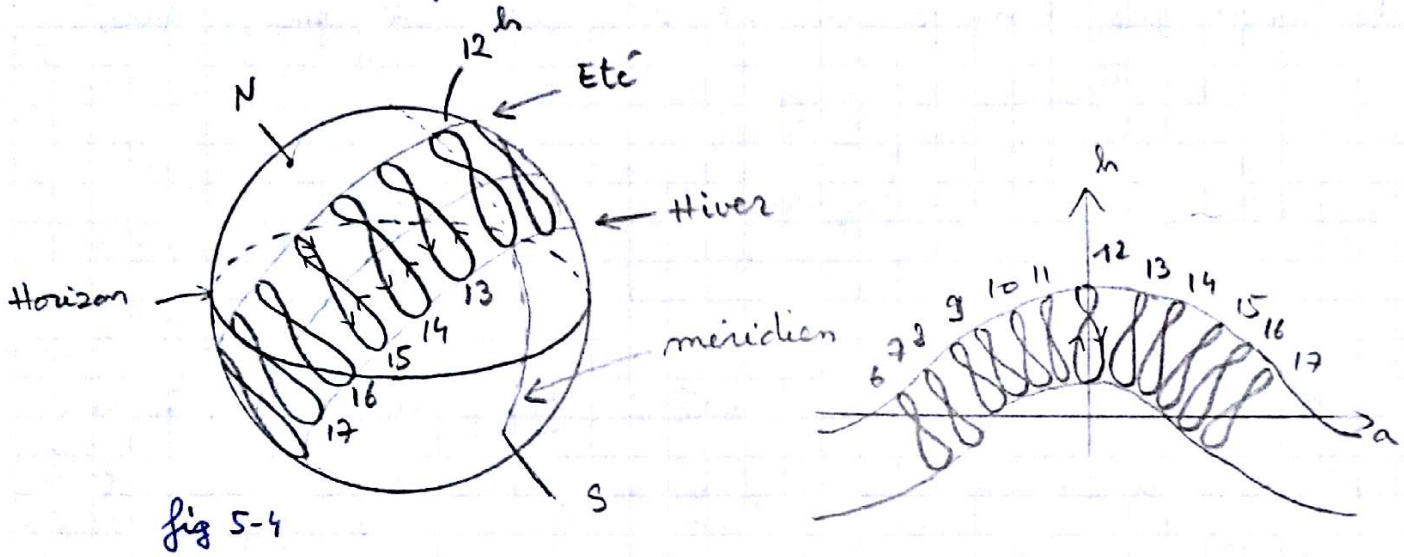 12 h
Eté
N
Hiver
Horizon
13
14
15
16
17
méridien
S
fig 5-4
h
6 7 8 9 10 11 12 13 14 15 16 17
a